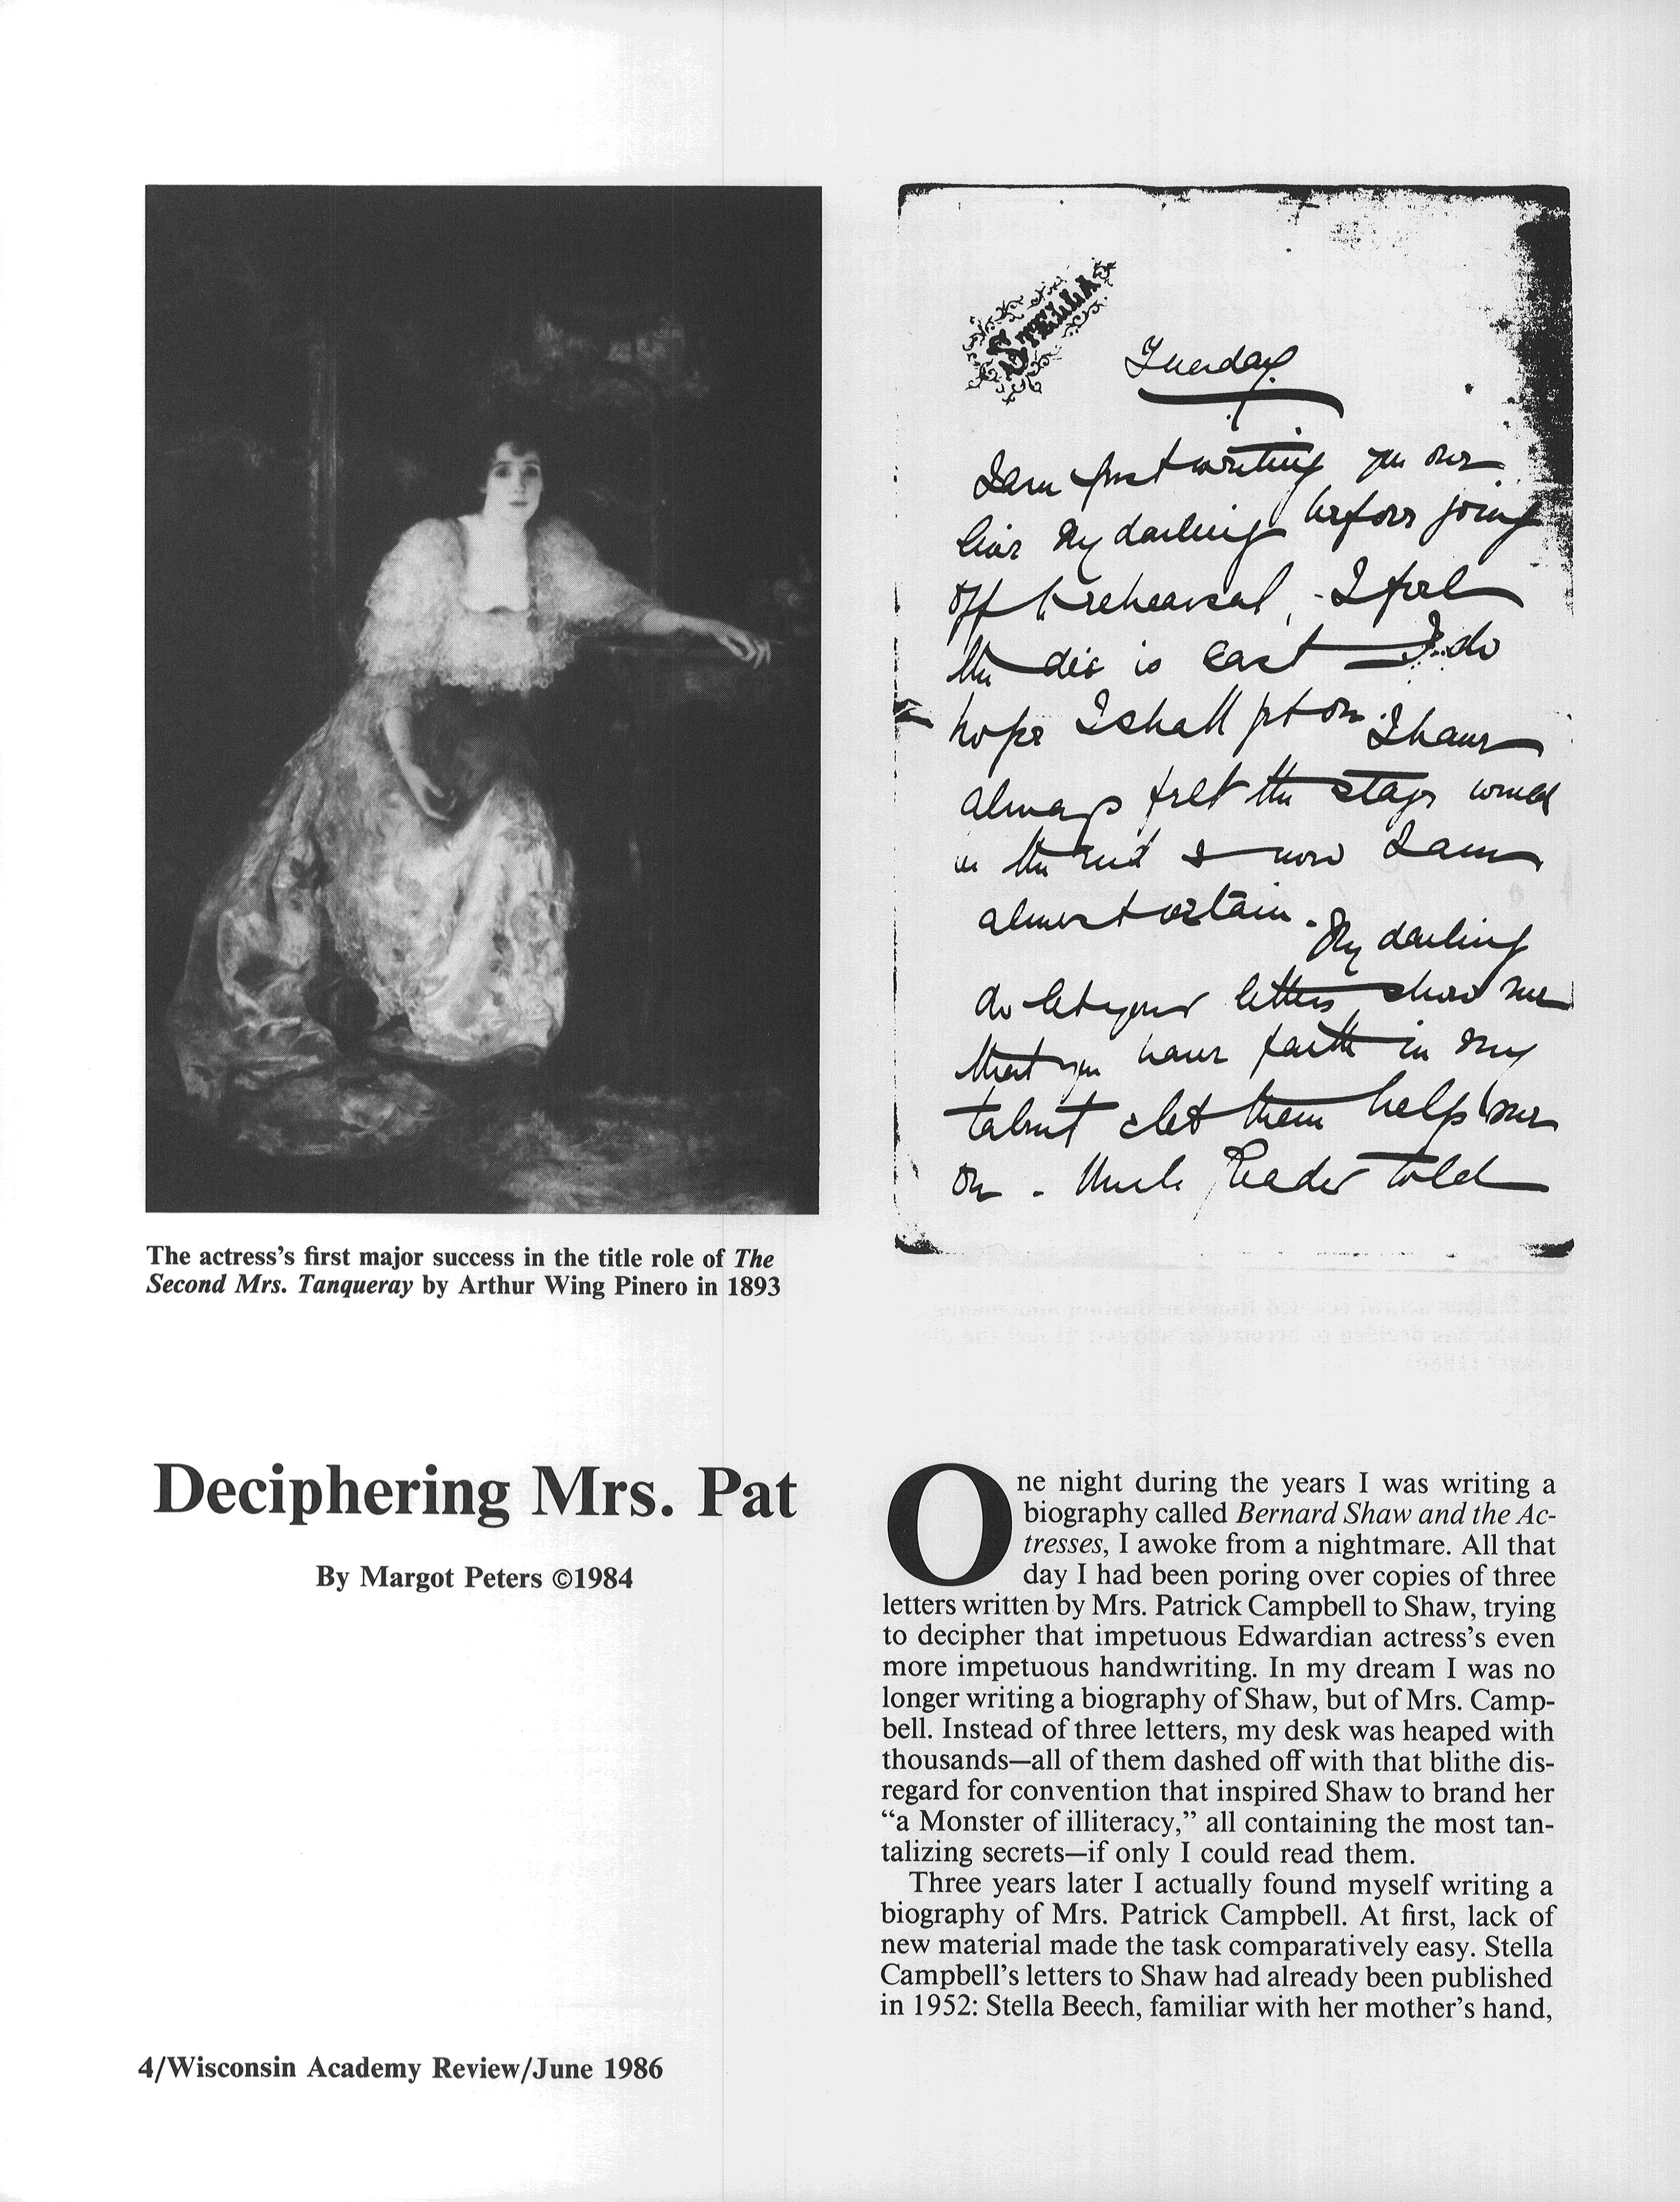 STELLA
Tuesday.
I am just writing you one
line My darling before going
off to rehearsal, - I feel
the die is cast — I do
hope I shall get on. I have
always felt the stage would
in the end & now I am
almost certain. My darling
do let your letters show me
that you have faith in my
talent & let them help me
on - Uncle told
The actress's first major success in the title role of The
Second Mrs. Tanqueray by Arthur Wing Pinero in 1893
Deciphering Mrs. Pat
By Margot Peters ©1984
One night during the years I was writing a
biography called Bernard Shaw and the Ac-
tresses, I awoke from a nightmare. All that
day I had been poring over copies of three
letters written by Mrs. Patrick Campbell to Shaw, trying
to decipher that impetuous Edwardian actress's even
more impetuous handwriting. In my dream I was no
longer writing a biography of Shaw, but of Mrs. Camp-
bell. Instead of three letters, my desk was heaped with
thousands—all of them dashed off with that blithe dis-
regard for convention that inspired Shaw to brand her
“a Monster of illiteracy,” all containing the most tan-
talizing secrets—if only I could read them.
Three years later I actually found myself writing a
biography of Mrs. Patrick Campbell. At first, lack of
new material made the task comparatively easy. Stella
Campbell's letters to Shaw had already been published
in 1952: Stella Beech, familiar with her mother's hand,
4/Wisconsin Academy Review/June 1986